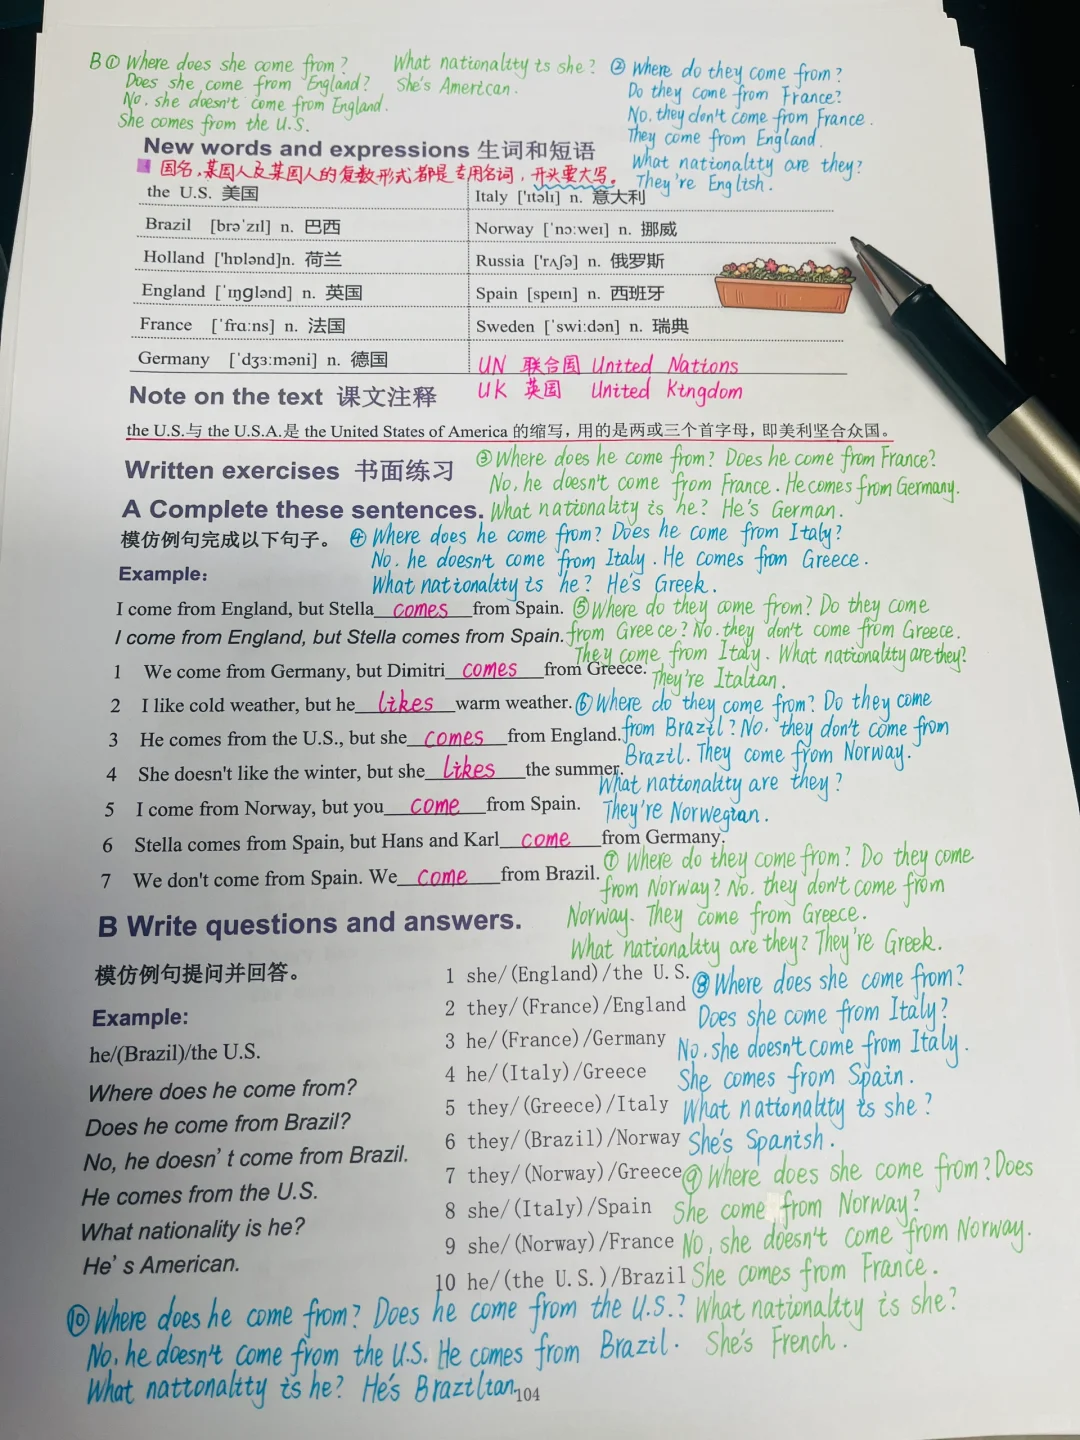 B① Where does she come from?
Does she come from England?
No, she doesn't come from England.
She comes from the U.S.
What nationality is she?
She's American.
② Where do they come from?
Do they come from France?
No, they don't come from France.
They come from England.
What nationality are they?
They're English.
New words and expressions 生词和短语
国名,某国人及某国人的复数形式都是专用名词,开头要大写。
the U.S. 美国
Italy ['ɪtəlɪ] n. 意大利
Brazil [brə'zɪl] n. 巴西
Norway ['nɔːweɪ] n. 挪威
Holland ['hɒlənd]n. 荷兰
Russia ['rʌʃə] n. 俄罗斯
England ['ɪŋglənd] n. 英国
Spain [speɪn] n. 西班牙
France ['frɑːns] n. 法国
Sweden ['swiːdən] n. 瑞典
Germany ['dʒɜːməni] n. 德国
UN 联合国 United Nations
UK 英国 United Kingdom
Note on the text 课文注释
the U.S.与 the U.S.A.是 the United States of America 的缩写，用的是两或三个首字母，即美利坚合众国。
Written exercises 书面练习
③ Where does he come from? Does he come from France?
No, he doesn't come from France. He comes from Germany.
What nationality is he? He's German.
A Complete these sentences.
模仿例句完成以下句子。
④ Where does he come from? Does he come from Italy?
No, he doesn't come from Italy. He comes from Greece.
What nationality is he? He's Greek.
Example:
I come from England, but Stella comes from Spain.
I come from England, but Stella comes from Spain.
⑤ Where do they come from? Do they come
from Greece? No, they don't come from Greece.
They come from Italy. What nationality are they?
They're Italian.
1 We come from Germany, but Dimitri comes from Greece.
2 I like cold weather, but he likes warm weather.
3 He comes from the U.S., but she comes from England.
4 She doesn't like the winter, but she likes the summer.
5 I come from Norway, but you come from Spain.
6 Stella comes from Spain, but Hans and Karl come from Germany.
7 We don't come from Spain. We come from Brazil.
⑥ Where do they come from? Do they come
from Brazil? No, they don't come from
Brazil. They come from Norway.
What nationality are they?
They're Norwegian.
⑦ Where do they come from? Do they come
from Norway? No, they don't come from
Norway. They come from Greece.
What nationality are they? They're Greek.
B Write questions and answers.
模仿例句提问并回答。
Example:
he/(Brazil)/the U.S.
Where does he come from?
Does he come from Brazil?
No, he doesn't come from Brazil.
He comes from the U.S.
What nationality is he?
He's American.
1 she/(England)/the U.S.
2 they/(France)/England
3 he/(France)/Germany
4 he/(Italy)/Greece
5 they/(Greece)/Italy
6 they/(Brazil)/Norway
7 they/(Norway)/Greece
8 she/(Italy)/Spain
9 she/(Norway)/France
10 he/(the U.S.)/Brazil
⑧ Where does she come from?
Does she come from Italy?
No, she doesn't come from Italy.
She comes from Spain.
What nationality is she?
She's Spanish.
⑨ Where does she come from? Does
She come from Norway?
No, she doesn't come from Norway.
She comes from France.
What nationality is she?
She's French.
⑩ Where does he come from? Does he come from the U.S.?
No, he doesn't come from the U.S. He comes from Brazil.
What nationality is he? He's Brazilian.
104